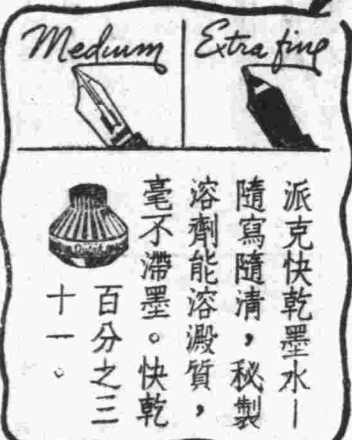 Medium
Extra fine
派克快乾墨水—
隨寫隨清，秘製
溶劑能溶澱質，
毫不滯墨。快乾
百分之三
十一。
Quink